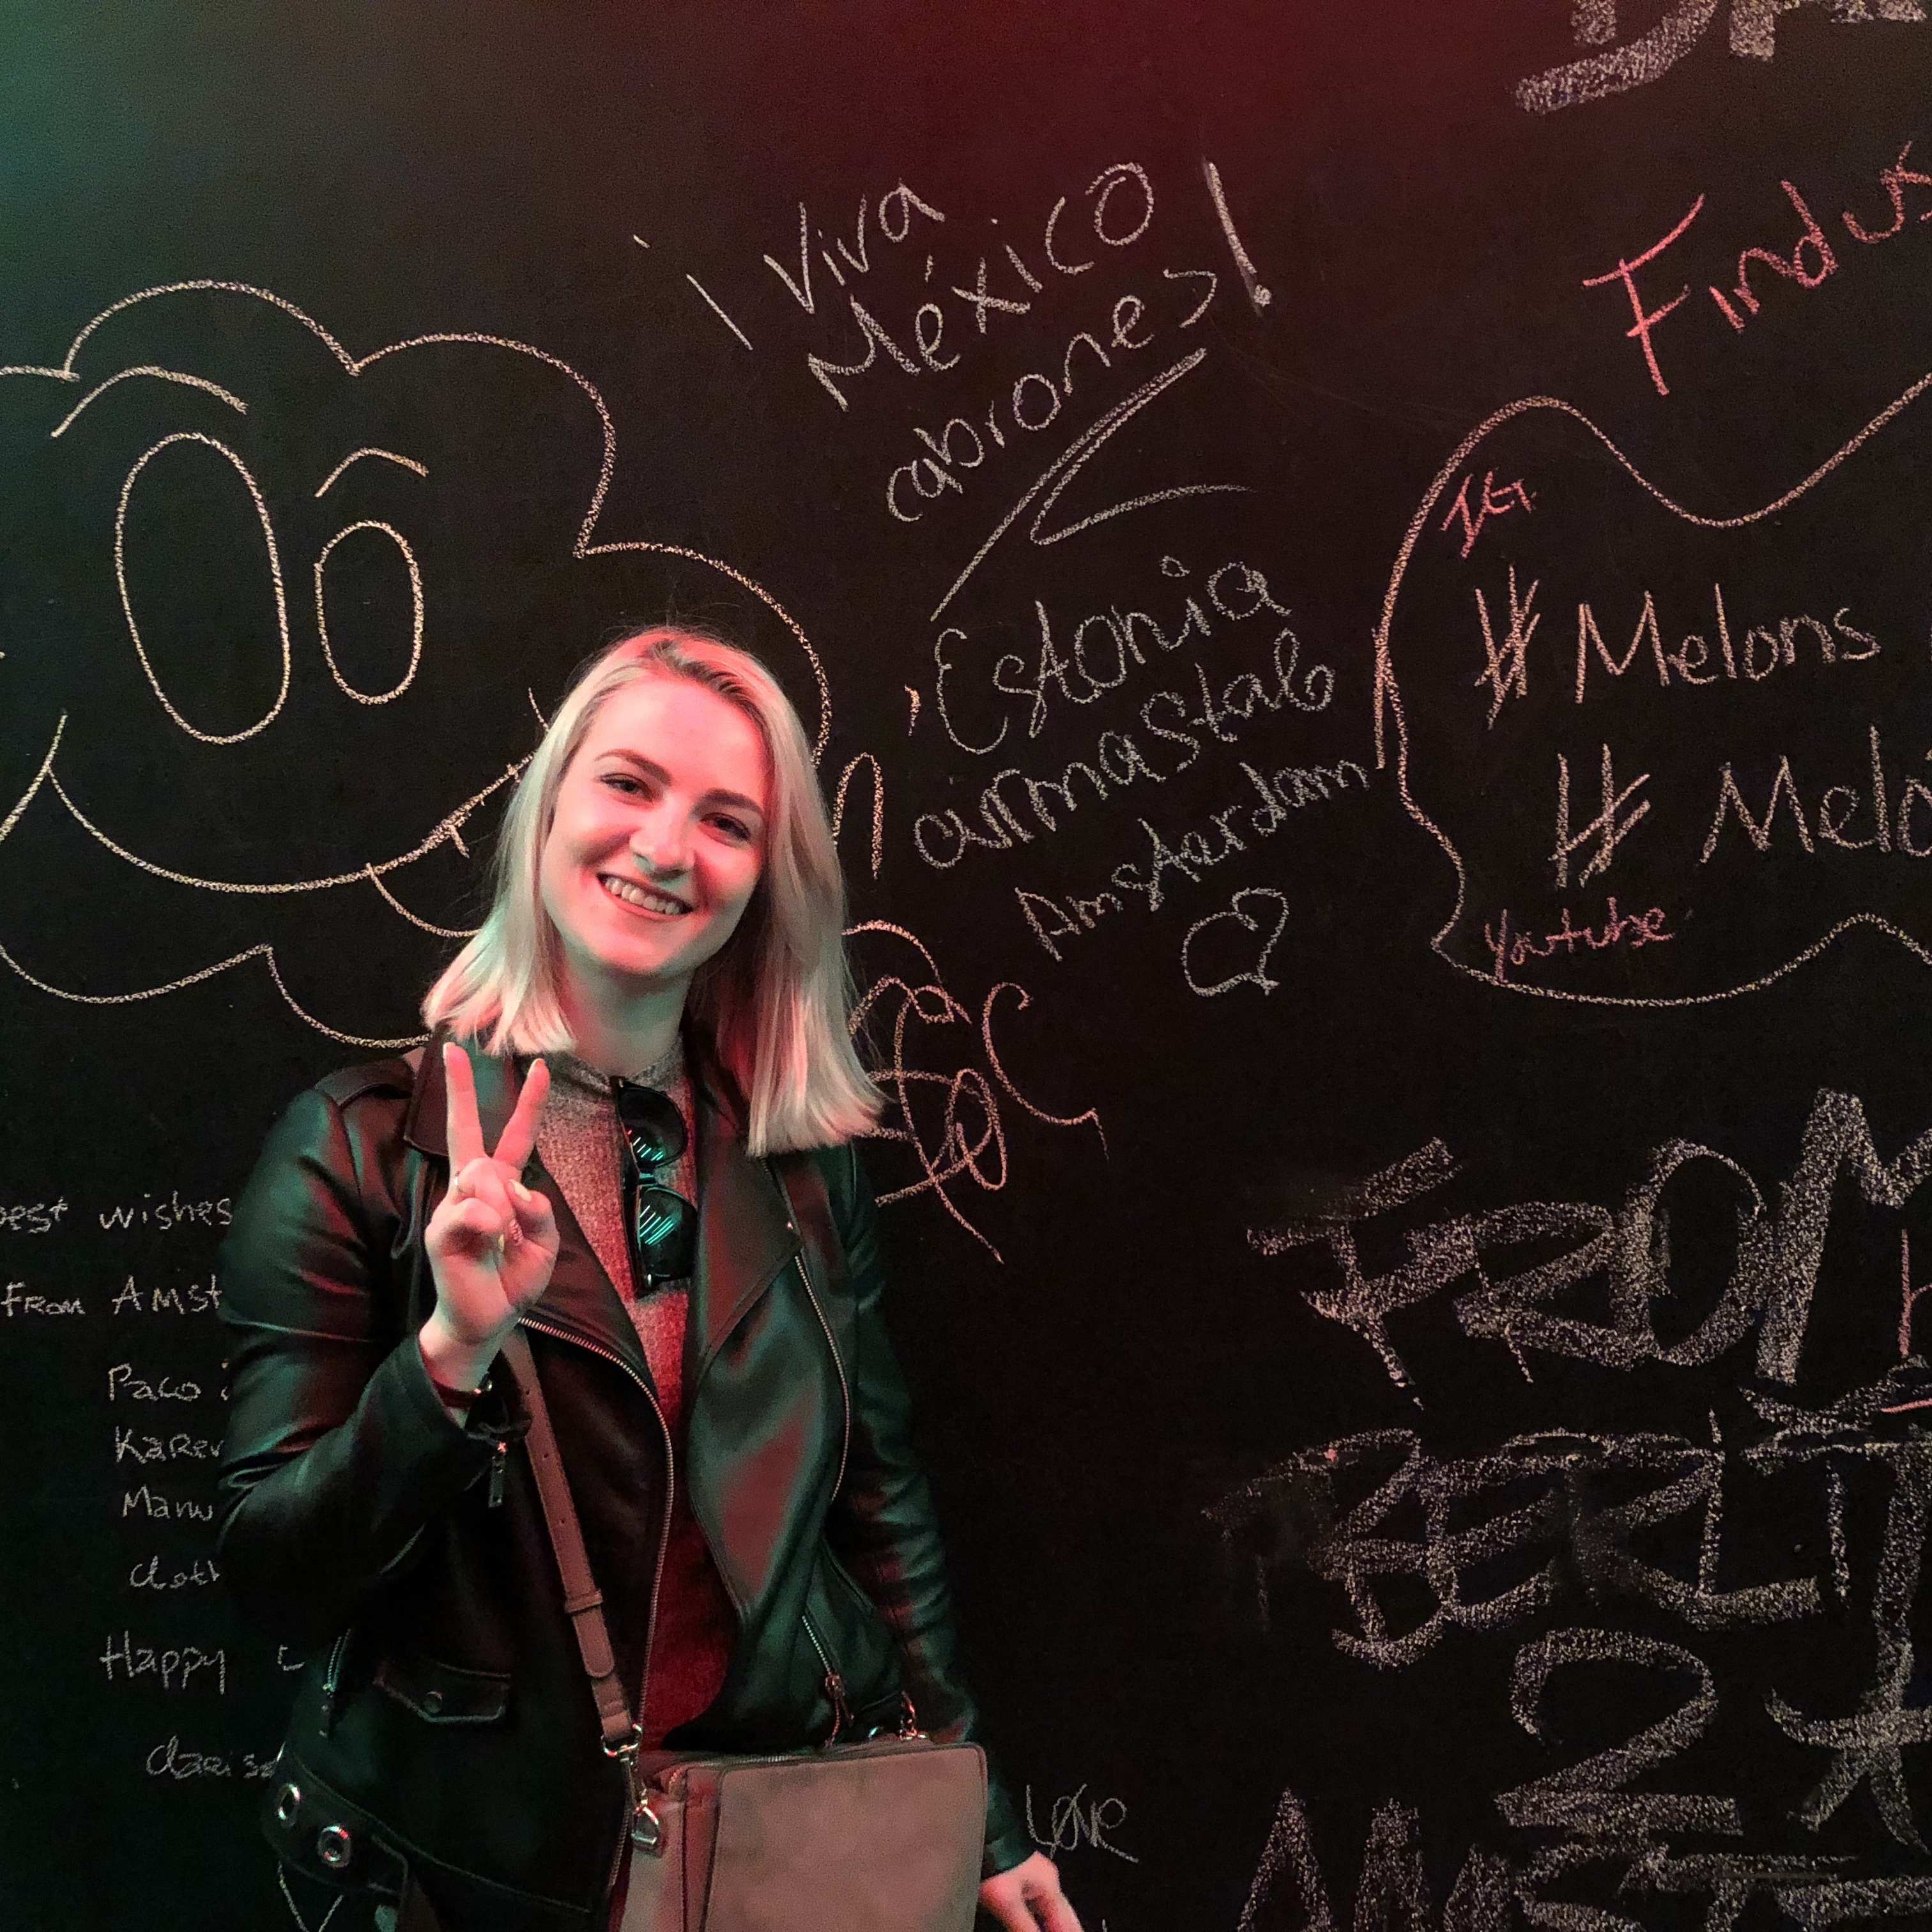 ¡Viva
México
cabrones!
Findus
Estonia
armastab
Amsterdam
IG
# Melons
# Melo
Youtube
best wishes
FROM Amst
Paco
Karen
Manu
Happy
FROM
BERLI
2
AMST
Love